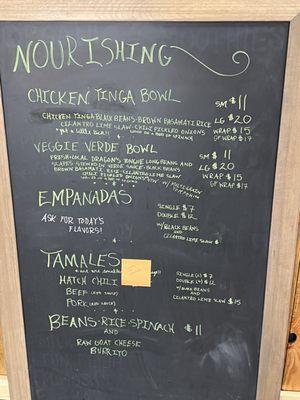 NOURISHING
CHICKEN TINGA BOWL
SM $11
LG $20
CHICKEN TINGA BLACK BEANS · BROWN BASAMATI RICE
CILANTRO LIME SLAW · CHILI PICKLED ONIONS
WRAP $15
* got a little kick!!
GF WRAP $17
VEGGIE VERDE BOWL
SM $11
FRESH + LOCAL DRAGON'S TONGUE LONG BEANS AND
LG $20
STEWED IN VERDE SAUCE · BLACK BEANS
BROWN BASAMATI RICE · CILANTRO LIME SLAW
WRAP $15
CHILI PICKLED
GF WRAP $17
EMPANADAS
SINGLE $7
DOUBLE $12
ASK FOR TODAY'S
FLAVORS!
W/ BLACK BEANS
AND
CILANTRO LIME SLAW $
TAMALES
HATCH CHILI
SINGLE (2) $7
DOUBLE (4) $12
BEEF (RED SAUCE)
W/ BLACK BEANS
AND
PORK (RED SAUCE)
CILANTRO LIME SLAW $15
BEANS · RICE · SPINACH
$11
AND
RAW GOAT CHEESE
BURRITO